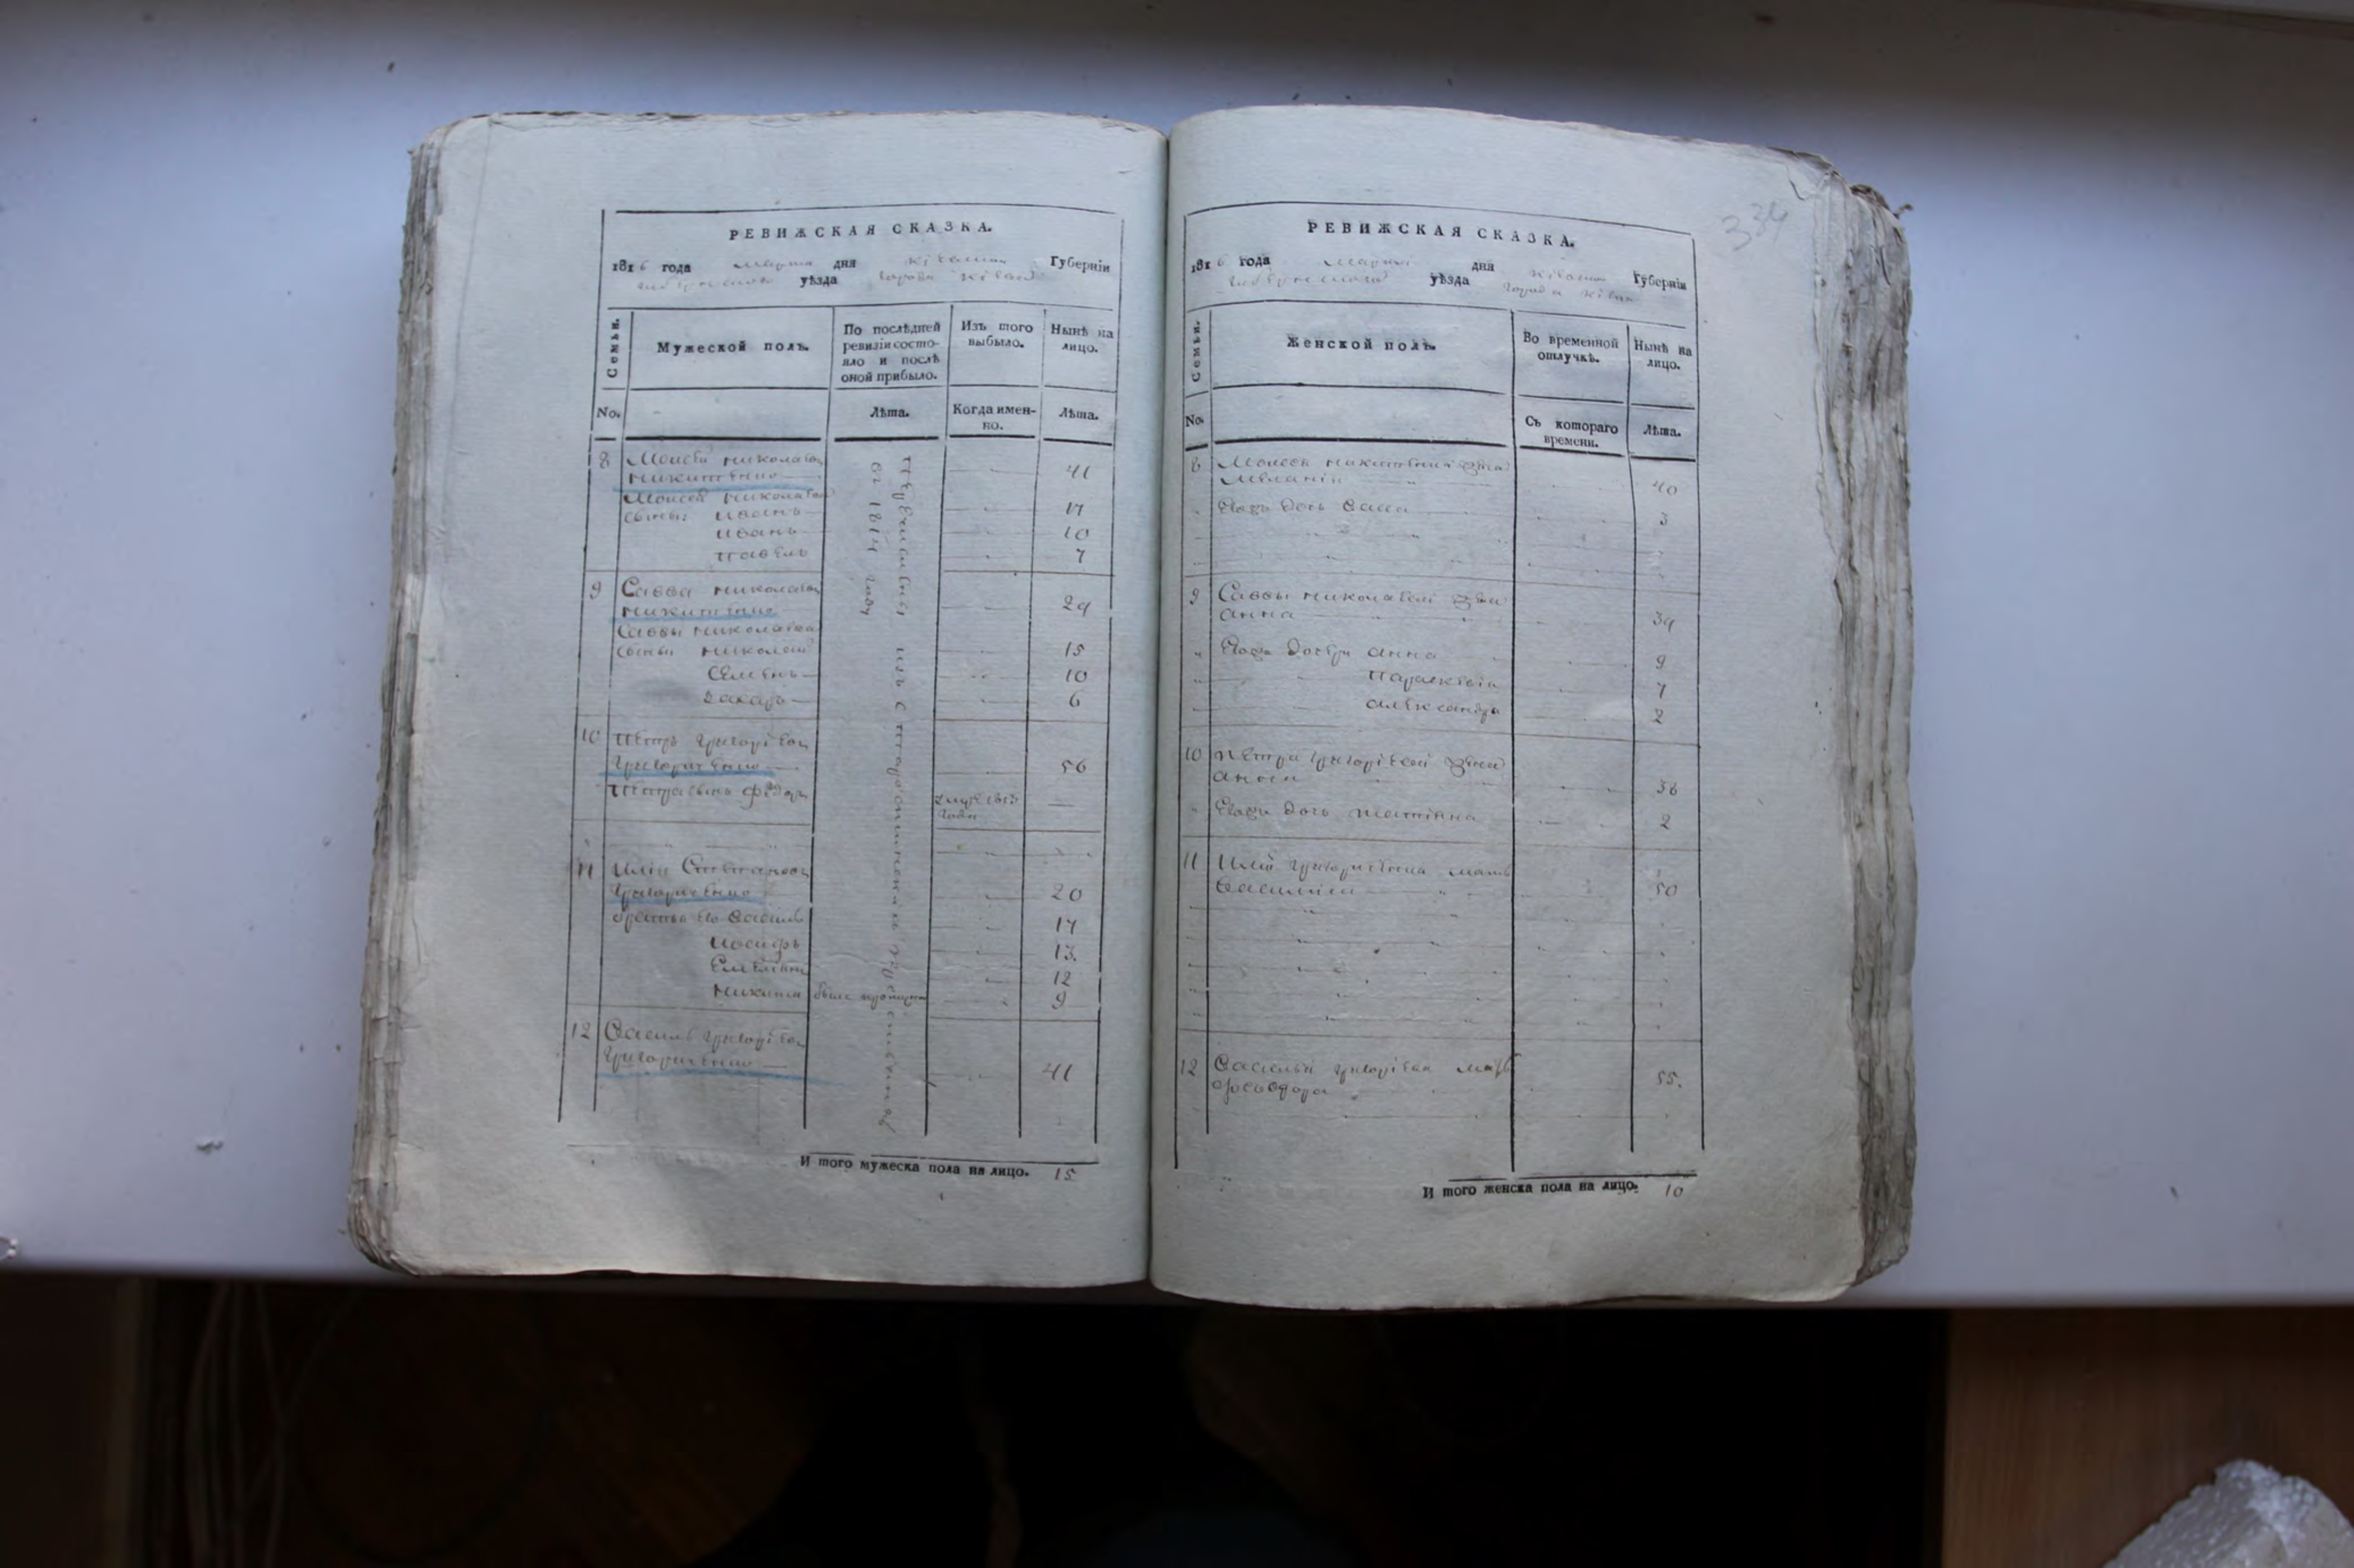 РЕВИЖСКАЯ СКАЗКА.
1816 года марта дня Кіевской Губерніи
губернского уѣзда города Кіева
Семьи.
Мужеской полъ.
По послѣдней ревизіи состояло и послѣ оной прибыло.
Изъ того выбыло.
Нынѣ на лицо.
No.
Лѣта.
Когда именно.
Лѣта.
8 Моисей Николаевъ
Никитенко 41
Моисея Николаева
сыны: Иванъ 17
Иванъ 10
Павелъ 7
9 Савва Николаевъ
Никитенко 29
Саввы Николаева
сыны Николай 15
Семенъ 10
Захаръ 6
10 Петръ Григорієвъ
Григориченко 56
Петра сынъ Федоръ
году
11 Илія Степановъ
Григориченко 20
братья его Василь 17
Иосифъ 13.
12
Никита былъ 9
12 Василь Григорієвъ
Григориченко 41
съ 1814 году
И того мужеска пола на лицо. 15
334
РЕВИЖСКАЯ СКАЗКА.
1816 года марта дня Кіевской Губерніи
губернского уѣзда города Кіева
Семьи.
Женской полъ.
Во временной отлучкѣ.
Нынѣ на лицо.
No.
Съ котораго времени.
Лѣта.
8 Моисея Никитенка жена
Меланія 40
дочь 3
9 Саввы Николаева жена
Анна 39
дочери Анна 9
Параскевія 7
Александра 2
10 Петра Григорієва жена
36
дочь Татіяна 2
11 Иліи Григориченка мать
Василиса 50
12 Василья Григорієва мать
Феодора 55.
И того женска пола на лицо. 10